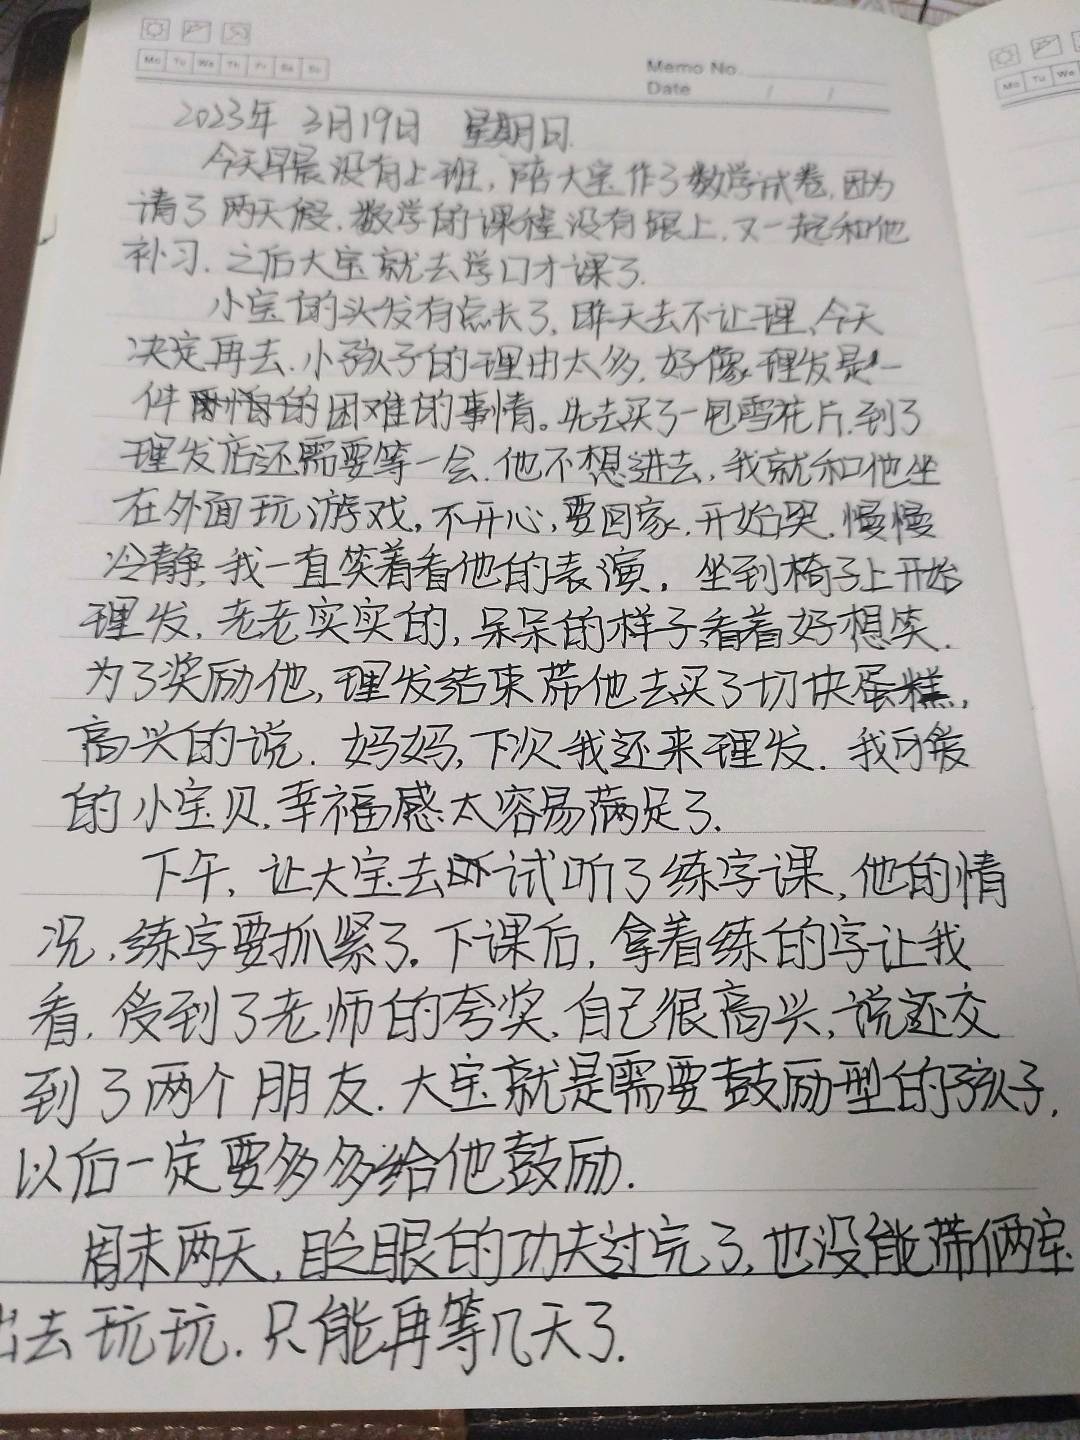 Mo Tu We Th Fr Sa Su
Memo No.
Date / /
Mo Tu We
2023年 3月19日 星期日.
今天早晨没有上班，陪大宝作了数学试卷，因为
请了两天假，数学的课程没有跟上，又一起和他
补习。之后大宝就去学口才课了.
小宝的头发有点长了，昨天去不让理，今天
决定再去，小孩子的理由太多，好像理发是一
件的困难的事情。先去买了一包雪花片，到了
理发店还需要等一会，他不想进去，我就和他坐
在外面玩游戏，不开心，要回家，开始哭，慢慢
冷静，我一直笑着看他的表演，坐到椅子上开始
理发，老老实实的，呆呆的样子看着好想笑.
为了奖励他，理发结束带他去买了切块蛋糕，
高兴的说，妈妈，下次我还来理发. 我可爱
的小宝贝，幸福感太容易满足了.
下午，让大宝去试听了练字课，他的情
况，练字要抓紧了。下课后，拿着练的字让我
看，受到了老师的夸奖，自己很高兴，说还交
到了两个朋友. 大宝就是需要鼓励型的孩子，
以后一定要多多给他鼓励.
周末两天，眨眼的功夫过完了，也没能带俩宝
出去玩玩. 只能再等几天了.